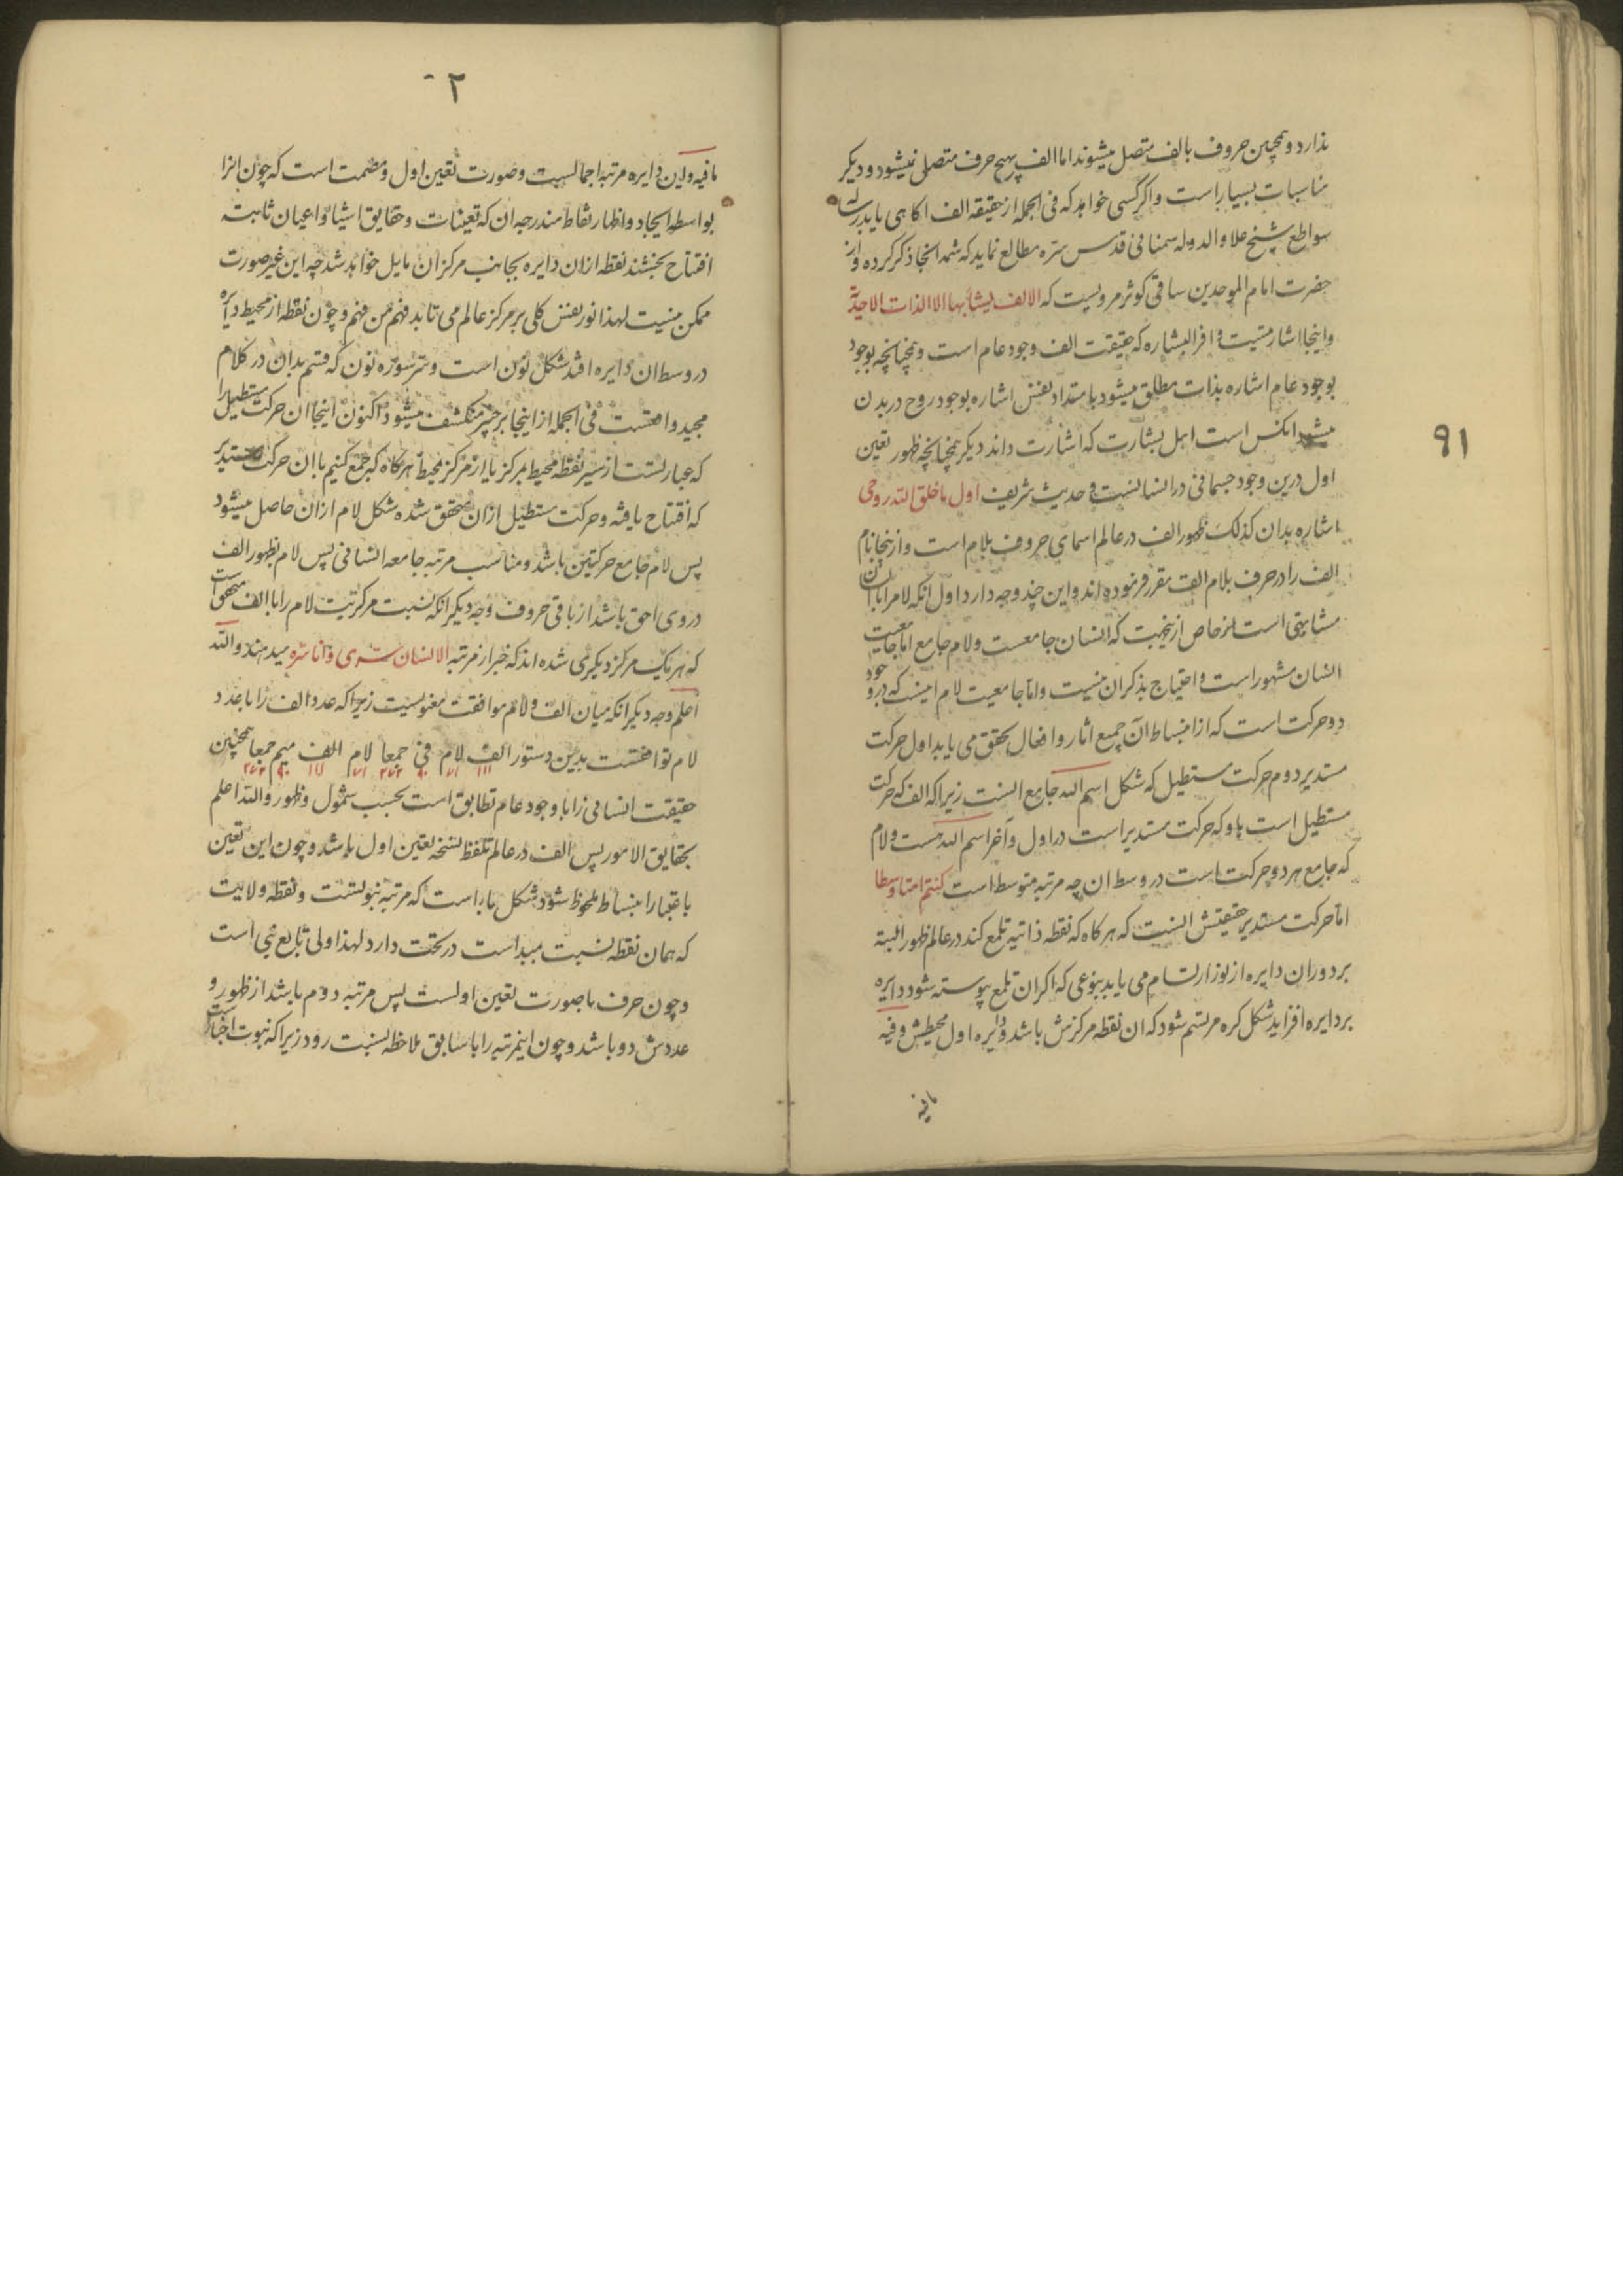 ندارد و همچنین حروف بالف متصل میشوند اما الف بهیچ حرف متصل نمیشود و دیکر
مناسبات بسیار است و اکر کسی خواهد که فی الجمله از حقیقه الف اکاهی یابد رساله
سواطع شیخ علاو الدوله سمنانی قدس سره مطالع نماید که شمه انجا ذکر کرده و از
حضرت امام الموحدین ساقی کوثر مرویست که الالف لیشابهها الا الذات الاحدیة
و اینجا اشارتیست وافر البشاره که حقیقت الف وجود عام است و همچنانچه بوجود
بوجود عام اشاره بذات مطلق میشود بامتداد نفس اشاره بوجود روح در بدن
انکس است اهل بشارت که اشارت داند دیکر همچنانچه ظهور تعین
اول درین وجود جسمانی در انسانست و حدیث شریف اول ما خلق الله روحی
اشاره بدان کذلک ظهور الف در عالم اسمای حروف بلام است و ازینجا نام
الف را در حرف بلام الف مقرر فرموده اند و این چند وجه دارد اول انکه لام را با انسان
مشابهتی است خاص ازینجهت که انسان جامعست و لام جامع اما جامعیت
انسان مشهور است و احتیاج بذکر ان نیست و اما جامعیت لام اینست که در وجود
دو حرکت است که از انبساط آن جمیع اثار و افعال تحقق می یابد اول حرکت
مستدیر دوم حرکت مستطیل که شکل اسم الله جامع انست زیرا که الف که حرکت
مستطیل است با و که حرکت مستدیر است در اول و آخر اسم الله هست و لام
که جامع هر دو حرکت است در وسط ان چه مرتبه متوسط است کنتم امتا وسطا
اما حرکت مستدیر حقیقتش انست که هر کاه که نقطه ذاتیه تلمع کند در عالم ظهور البته
بر دوران دایره از نور ارتسام می یابد بنوعی که اکر ان تلمع پیوسته شود دایره
بر دایره افزاید شکل کره مرتسم شود که ان نقطه مرکزش باشد و دایره اول محیطش و فیه
ما فیه
۹۱
۲
ما فیه و این دایره مرتبه اجمالیست و صورت تعین اول و مصمت است که چون انرا
بواسطه ایجاد و اظهار نقاط مندرجه ان که تعینات و حقایق اشیا و اعیان ثابته
افتتاح بخشند نقطه ازان دایره بجانب مرکز ان مایل خواهد شد چه این غیر صورت
ممکن نیست لهذا نور نفس کلی بر مرکز عالم می تابد فهم من فهم و چون نقطه از محیط دایره
در وسط ان دایره افتد شکل نون است و سر سوره نون که قسم بدان در کلام
مجید واقعست فی الجمله ازاینجا بر خبر منکشف میشود اکنون اینجا ان حرکت مستطیل را
که عبارتست از سیر نقطه محیط بمرکز یا از مرکز بمحیط هرکاه که جمع کنیم با ان حرکت مستدیر
که افتتاح یافته و حرکت مستطیل ازان متحقق شده شکل لام ازان حاصل میشود
پس لام جامع حرکتین باشد و مناسب مرتبه جامعه انسانی پس لام بظهور الف
در وی احق باشد از باقی حروف وجه دیکر انکه نسبت مرکزیت لام را با الف متحقق است
که هر یک مرکز دیکری شده اند که خبر از مرتبه الانسان سری و انا سره میدهند والله
اعلم وجه دیکر انکه میان الف و لام موافقت معنویست زیرا که عدد الف را با عدد
لام توافقست بدین دستور الف لام فی جمعا لام الف میم جمعا همچنین
۱۱۱ ۷۱ ۹۰ ۲۷۲ ۷۱ ۱۱۱ ۹۰ ۲۷۲
حقیقت انسانی را با وجود عام تطابق است بحسب شمول و ظهور والله اعلم
بحقایق الامور پس الف در عالم تلفظ نسخه تعین اول باشد و چون این تعین
باعتبار انبساط ملحوظ شود بشکل با راست که مرتبه نبوتست و نقطه ولایت
که همان نقطه نسبت مبداست در تحت دارد لهذا ولی تابع نبی است
و چون حرف با صورت تعین اولست پس مرتبه دوم باشد از ظهور و
عددش دو باشد و چون اینمرتبه را با سابق ملاحظه نسبت رود زیرا که نبوت